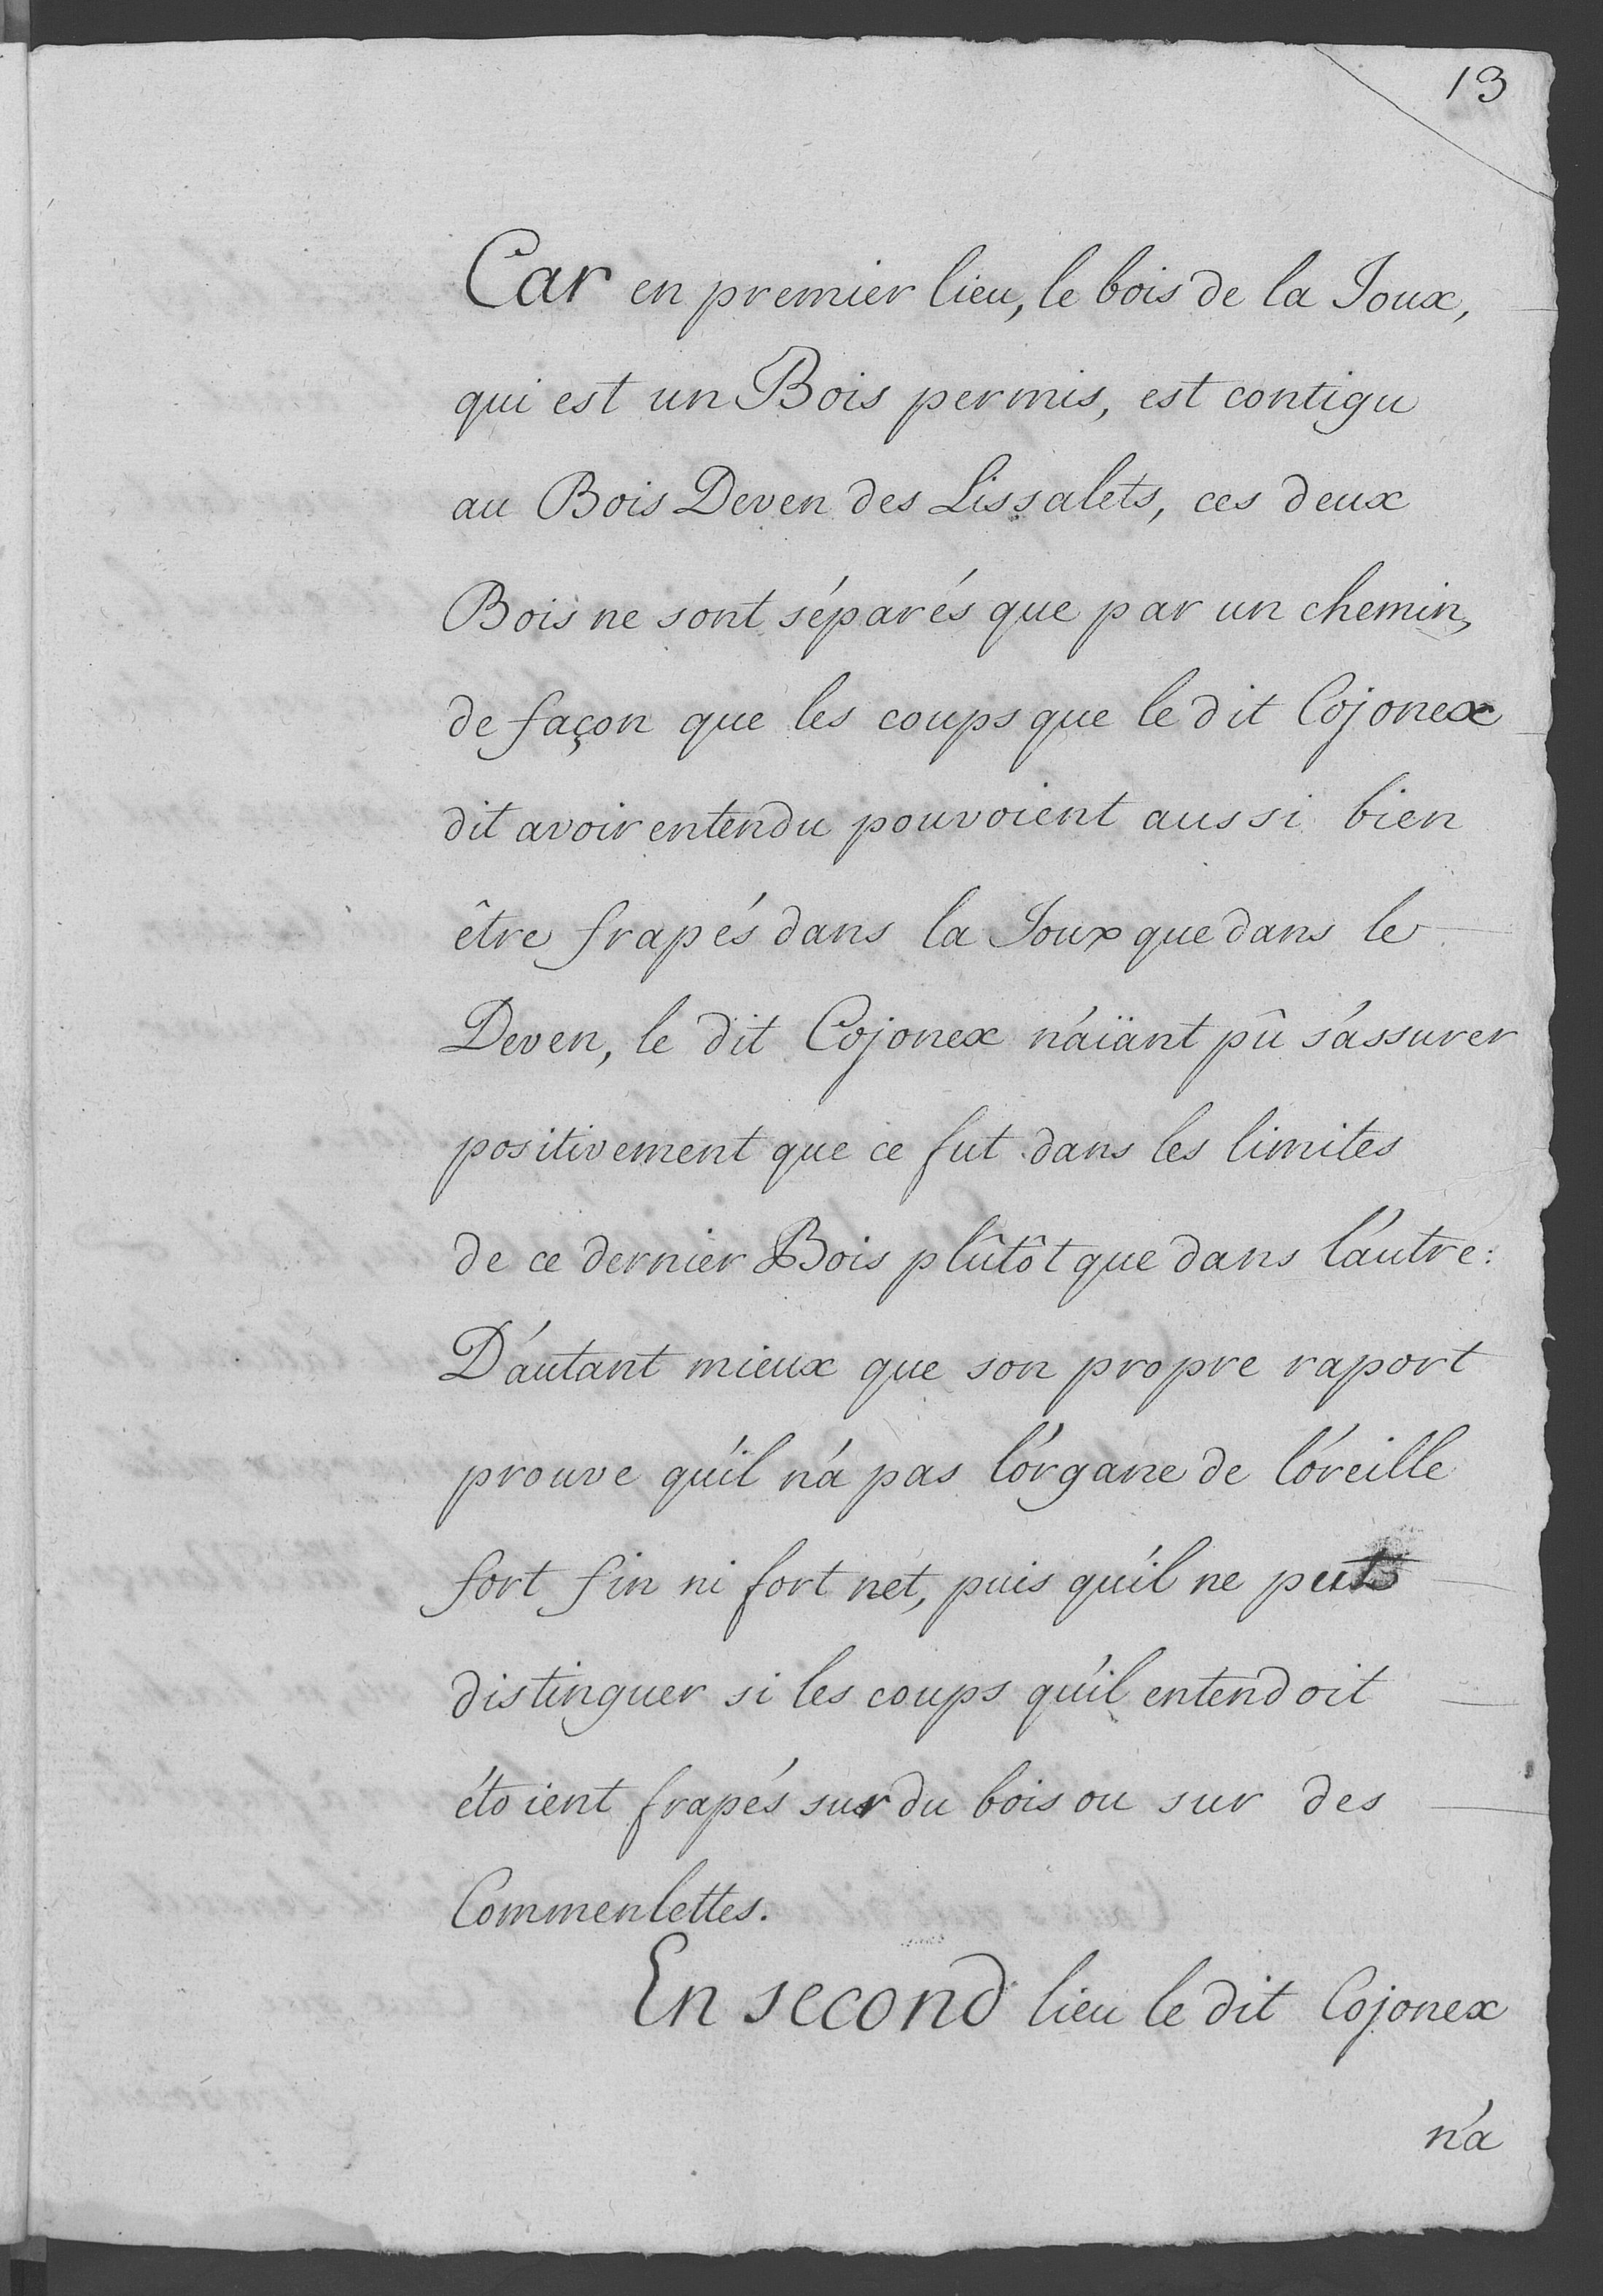 13
Car en premier lieu, le bois de la Joux,
qui est un Bois permis, est contigu
au Bois Deven des Lissalets, ces deux
Bois ne sont séparés que par un chemin,
de façon que les coups que le dit Cojonex
dit avoir entendu pouvoient aussi bien
être frapés dans la Joux que dans le
Deven, le dit Cojonex n'aïant pû s'assurer
positivement que ce fut dans les limites
de ce dernier Bois plûtôt que dans l'autre:
D'autant mieux que son propre raport
prouve qu'il n'a pas l'organe de l'oreille
fort fin ni fort net, puis qu'il ne put
distinguer si les coups qu'il entendoit
étoient frapés sur du bois ou sur des
Commenlettes.
En second lieu le dit Cojonex
n'a